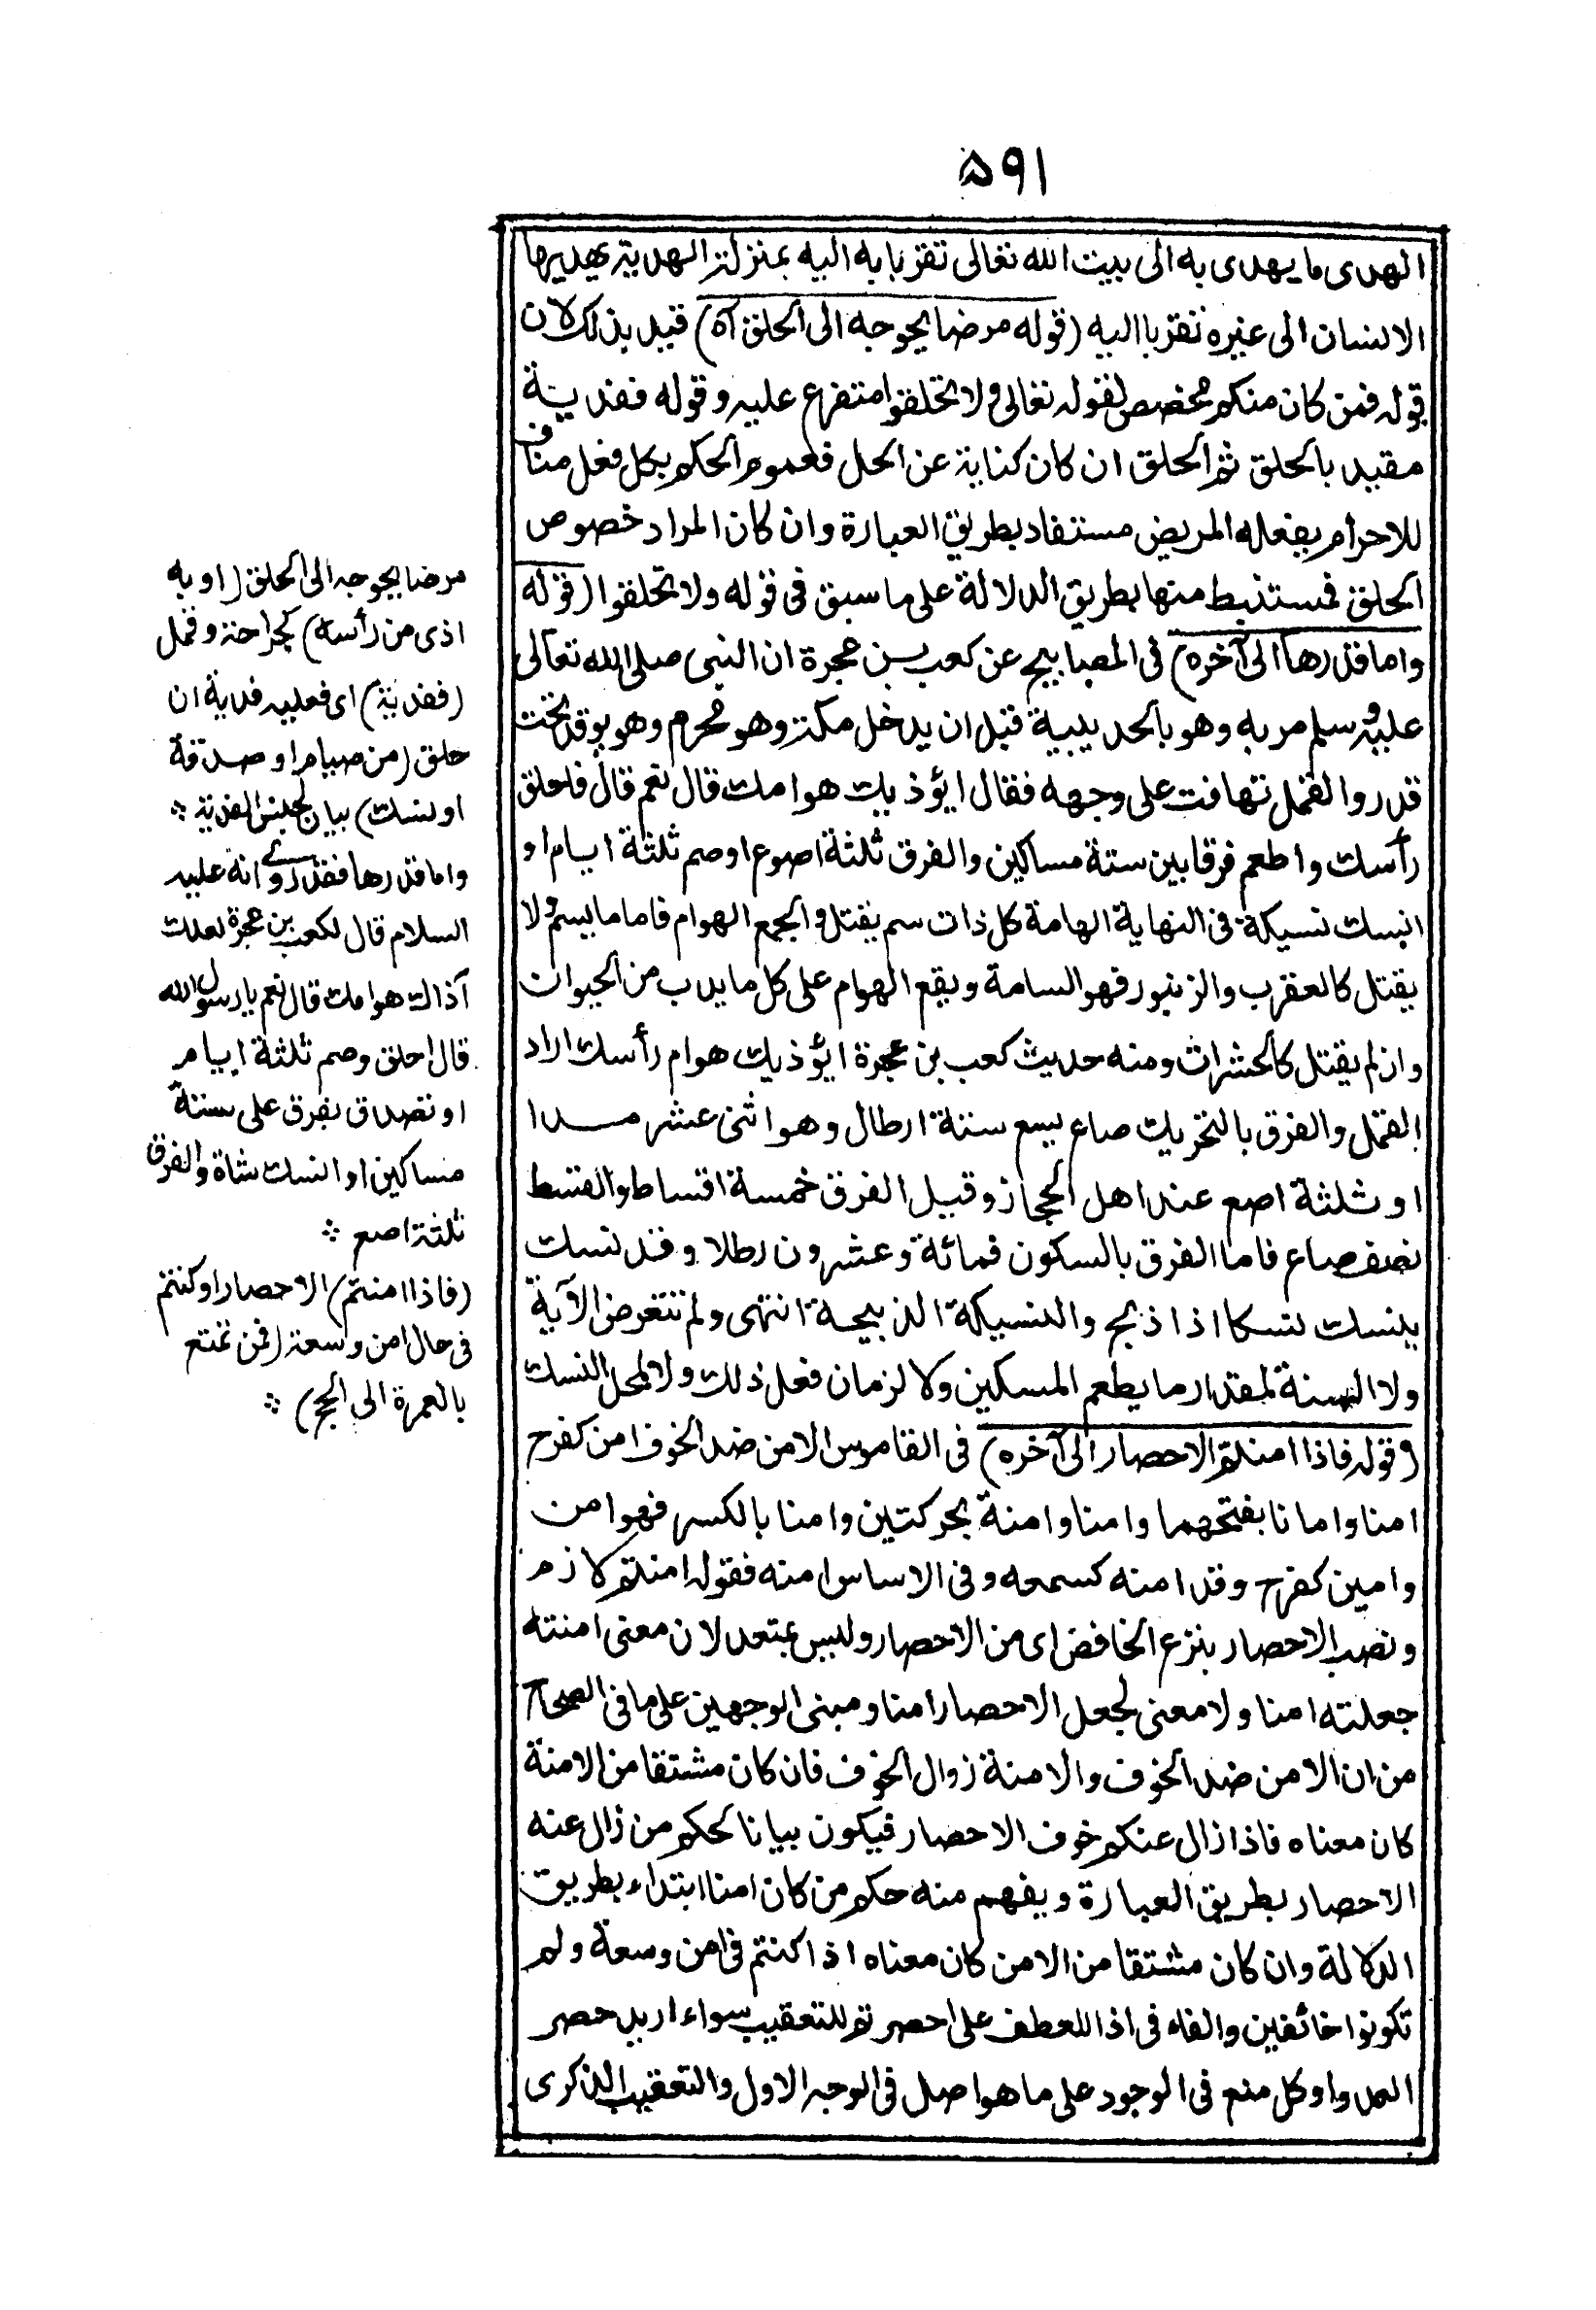 ۵۹۱
الهدى ما يهدى به الى بيت الله تعالى تقربا به اليه بمنزلة الهدية يهديها
الانسان الى غيره تقربا اليه (قوله مرضا يحوجه الى الحلق آه) قيد بذلك لان
قوله فمن كان منكم مخصص لقوله تعالى ولا تحلقوا متفرع عليه وقوله ففدية
مقيد بالحلق ثم الحلق ان كان كناية عن الحل فعموم الحكم بكل فعل مناف
للاحرام يفعله المريض مستفاد بطريق العبارة وان كان المراد خصوص
الحلق فمستنبط منها بطريق الدلالة على ما سبق فى قوله ولا تحلقوا (قوله
واما قدرها الى آخره) فى المصابيح عن كعب بن عجرة ان النبى صلى الله تعالى
عليه وسلم مر به وهو بالحديبية قبل ان يدخل مكة وهو محرم وهو يوقد تحت
قدر والقمل تهافت على وجهه فقال ايؤذيك هوامك قال نعم قال فاحلق
رأسك واطعم فرقا بين ستة مساكين والفرق ثلثة اصوع او صم ثلثة ايام او
انسك نسيكة فى النهاية الهامة كل ذات سم يقتل والجمع الهوام فاما ما يسم ولا
يقتل كالعقرب والزنبور فهو السامة ويقع الهوام على كل ما يدب من الحيوان
وان لم يقتل كالحشرات ومنه حديث كعب بن عجرة ايؤذيك هوام رأسك اراد
القمل والفرق بالتحريك صاع يسع ستة ارطال وهو اثنى عشر مدا
او ثلثة اصع عند اهل الحجاز وقيل الفرق خمسة اقساط والقسط
نصف صاع فاما الفرق بالسكون فمائة وعشرون رطلا وقد نسك
ينسك نسكا اذا ذبح والنسيكة الذبيحة انتهى ولم تتعرض الآية
ولا السنة لمقدار ما يطعم المسكين ولا لزمان فعل ذلك ولا لمحل النسك
(قوله فاذا امنتم الاحصار الى آخره) فى القاموس الامن ضد الخوف امن كفرح
امنا وامانا بفتحهما وامنا وامنة بحركتين وامنا بالكسر فهو امن
وامين كفرح وقد امنه كسمعه وفى الاساس امنه فقوله امنتم لازم
ونصب الاحصار بنزع الخافض اى من الاحصار وليس بمتعد لان معنى امنته
جعلته امنا ولا معنى لجعل الاحصار امنا ومبنى الوجهين على ما فى الصحاح
من ان الامن ضد الخوف والامنة زوال الخوف فان كان مشتقا من الامنة
كان معناه فاذا زال عنكم خوف الاحصار فيكون بيانا لحكم من زال عنه
الاحصار بطريق العبارة ويفهم منه حكم من كان امنا ابتداء بطريق
الدلالة وان كان مشتقا من الامن كان معناه اذا كنتم فى امن وسعة ولم
تكونوا خائفين والفاء فى اذا للعطف على احصرتم للتعقيب سواء اريد حصر
العدو او كل منع فى الوجود على ما هو اصل فى الوجه الاول والتعقيب الذكرى
مرضا يحوجه الى الحلق (او به
اذى من رأسه) كجراحة وقمل
(ففدية) اى فعليه فدية ان
حلق (من صيام او صدقة
او نسك) بيان لجنس الفدية ⁘
واما قدرها فقد روى انه عليه
السلام قال لكعب بن عجرة لعلك
آذاك هوامك قال نعم يا رسول الله
قال احلق وصم ثلثة ايام
او تصدق بفرق على ستة
مساكين او انسك شاة والفرق
ثلثة اصع ⁘
(فاذا امنتم) الاحصار او كنتم
فى حال امن وسعة (فمن تمتع
بالعمرة الى الحج) ⁘